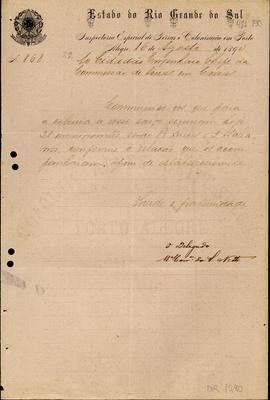 Estado do Rio Grande do Sul
Inspectoria Especial de Terras e Colonisação em Porto
Alegre, 16 de Agosto de 1890
N. 168
Ao Cidadão Engenheiro Chefe da
Commissão de Terras em
Communico-vos que para
a colonia a vosso cargo seguiram hoje
21 immigrantes, sendo 19 e 2
conforme a relação que os acom
panharam, afim de estabelecerem-se
Saude e fraternidade
O Delegado
PORTO ALEGRE